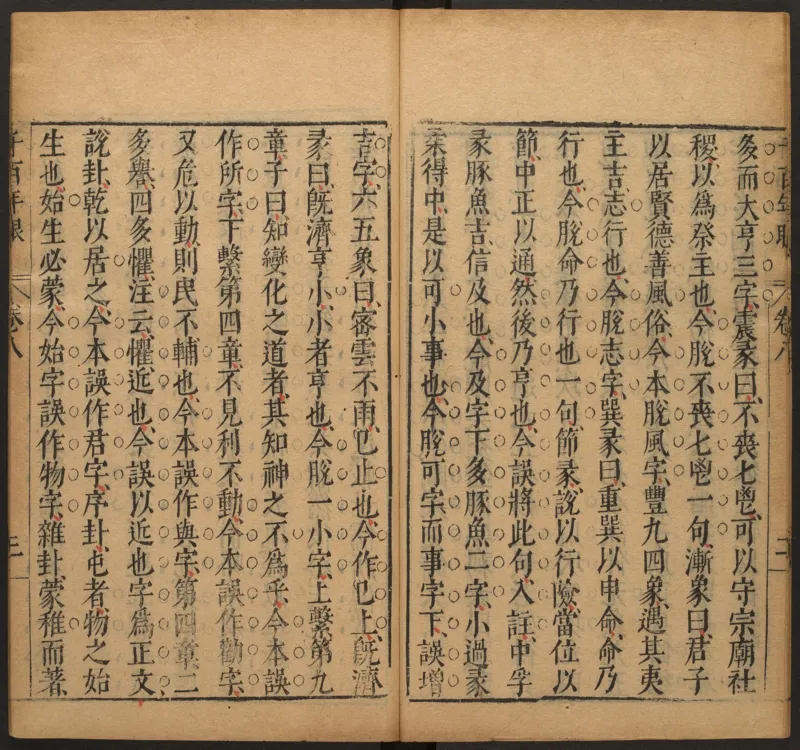 千百年眼 卷八 二
多而大亨三字震彖曰不喪七鬯可以守宗廟社
稷以爲祭主也今脫不喪七鬯一句漸象曰君子
以居賢德善風俗今本脫風字豐九四象遇其夷
主吉志行也今脫志字巽彖曰重巽以申命命乃
行也今脫命乃行也一句節彖說以行險當位以
節中正以通然後乃亨也今誤將此句入註中孚
彖豚魚吉信及也今及字下多豚魚二字小過彖
柔得中是以可小事也今脫可字而事字下誤增
吉字六五象曰密雲不雨已止也今作已上旣濟
彖曰旣濟亨小小者亨也今脫一小字上繫第九
童子曰知變化之道者其知神之不爲乎今本誤
作所字下繫第四童不見利不動今本誤作勸字
又危以動則民不輔也今本誤作與字第四章二
多譽四多懼注云懼近也今誤以近也字爲正文
說卦乾以居之今本誤作君字序卦屯者物之始
生也始生必蒙今始字誤作物字雜卦蒙稚而著
千百年眼 卷八 三